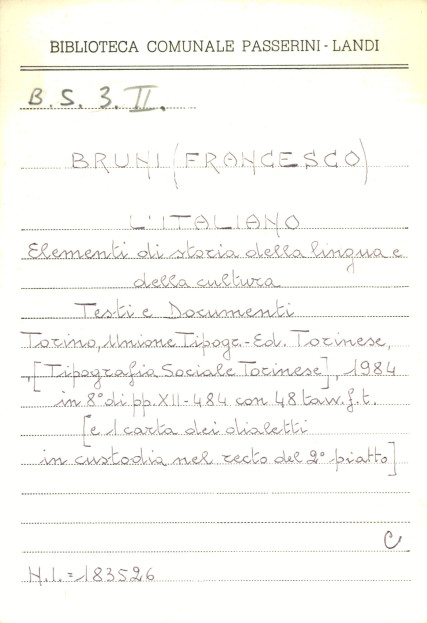 BIBLIOTECA COMUNALE PASSERINI - LANDI
B. S. 3. II.
BRUNI (FRANCESCO)
L'ITALIANO
Elementi di storia della lingua e
della cultura
Testi e Documenti
Torino, Unione Tipogr.-Ed. Torinese,
,[Tipografia Sociale Torinese], 1984
in 8° di pp. XII-484 con 48 tavv. f. t.
[e 1 carta dei dialetti
in custodia nel recto del 2° piatto]
C
N.I.=183526